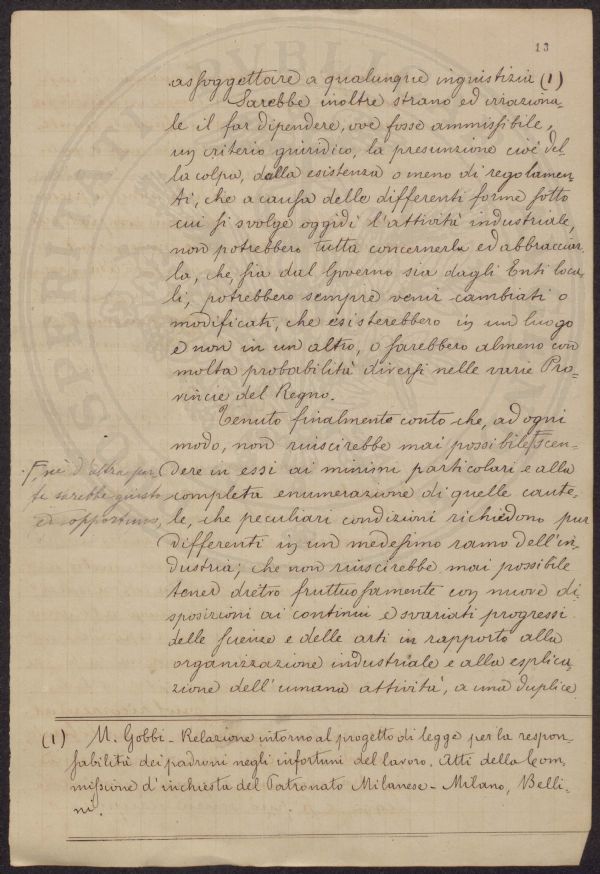 13
assoggettare a qualunque ingiustizia (1)
Sarebbe inoltre strano ed irraziona-
le il far dipendere, ove fosse ammissibile,
un criterio giuridico, la presunzione cioè del-
la colpa, dalla esistenza o meno di regolamen-
ti, che a causa delle differenti forme sotto
cui si svolge oggidì l'attività industriale,
non potrebbero tutta concernerla ed abbracciar-
la, che, sia dal Governo sia dagli Enti loca-
li, potrebbero sempre venir cambiati o
modificati, che esisterebbero in un luogo
e non in un altro, o sarebbero almeno con
molta probabilità diversi nelle varie Pro-
vincie del Regno.
Tenuto finalmente conto che, ad ogni
modo, non riuscirebbe mai possibile scen-
dere in essi ai minimi particolari e alla
completa enumerazione di quelle caute-
le, che peculiari condizioni richiedono pur
differenti in un medesimo ramo dell'in-
dustria; che non riuscirebbe mai possibile
tener dietro fruttuosamente con nuove di-
sposizioni ai continui e svariati progressi
delle scienze e delle arti in rapporto alla
organizzazione industriale e alla esplica-
zione dell'umana attività, a una duplice
nè d'altra par-
te sarebbe giusto
ed opportuno,
(1) M. Gobbi - Relazione intorno al progetto di legge per la respon-
sabilità dei padroni negli infortuni del lavoro. Atti della Com-
missione d'inchiesta del Patronato Milanese - Milano, Belli-
ni.
PERITATI PVBLIC